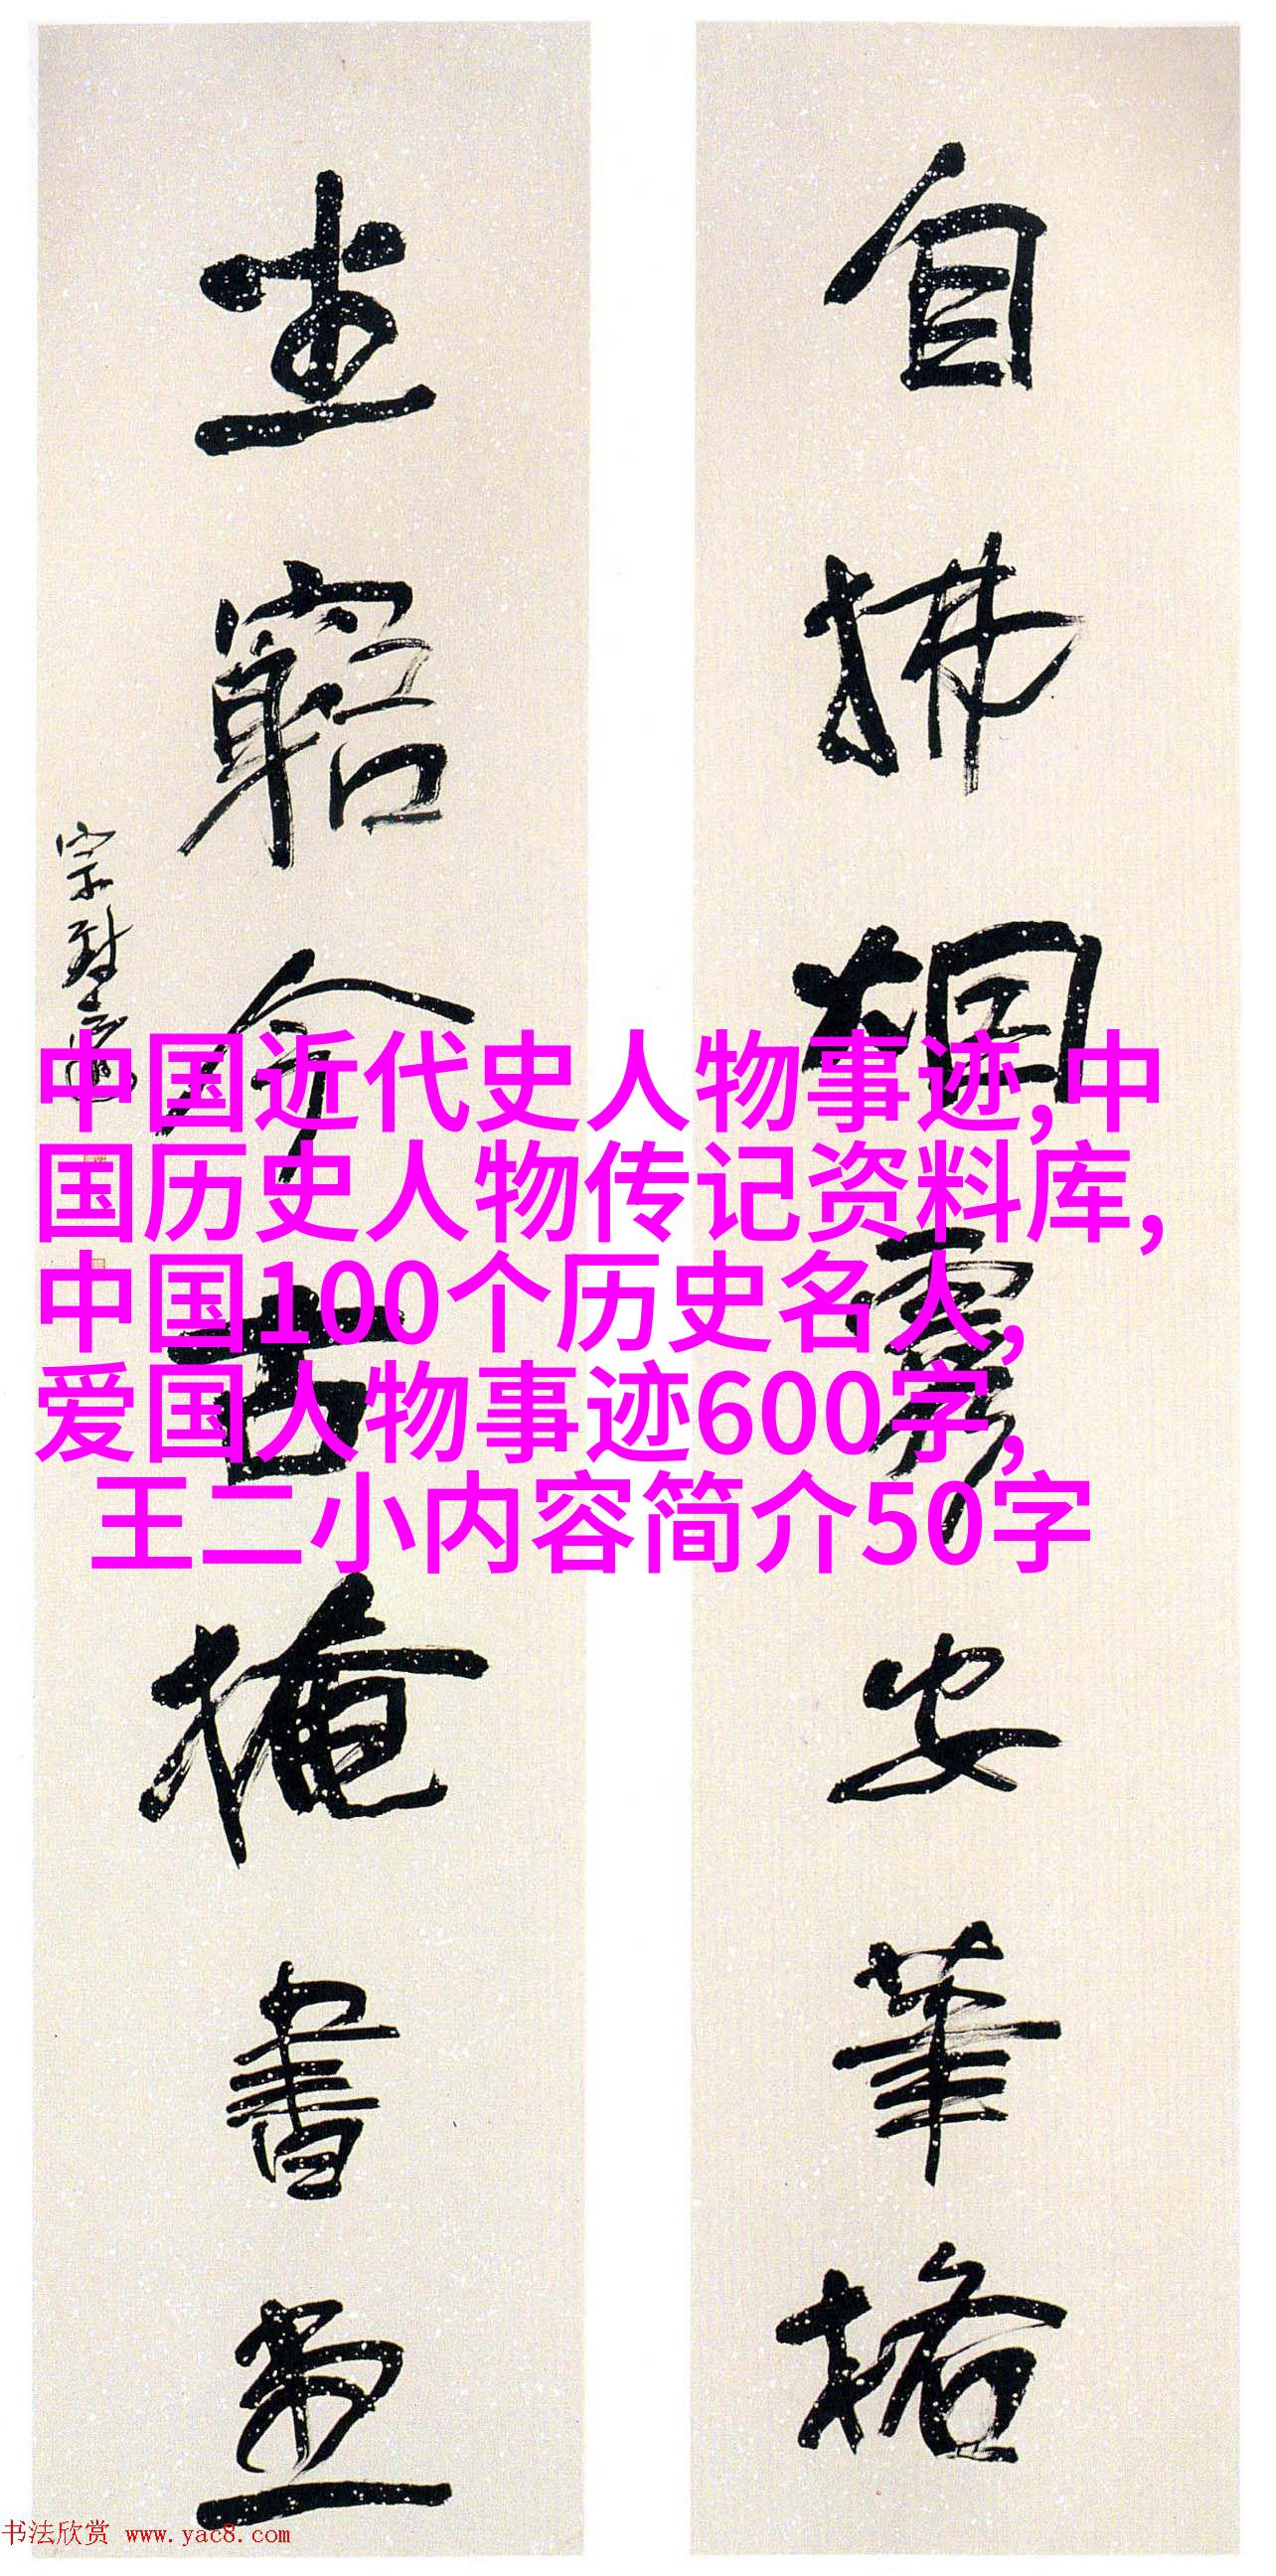 自拂烟霞安筆格
坐窮今古掩書堂
中国近代史人物事迹,中
国历史人物传记资料库,
中国100个历史名人,
爱国人物事迹600字,
王二小内容简介50字
书法欣赏 www.yac8.com